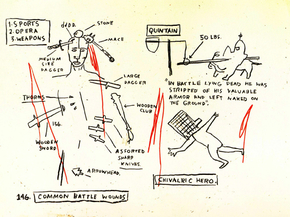 1. SPORTS
2. OPERA
3. WEAPONS
STONE
MACE
MEDIUM
SIZE
DAGGER
LARGE
DAGGER
THORNS
WOODEN
CLUB
WOODEN
SWORD
ASSORTED
SHARP
KNIVES.
ARROWHEAD.
146. COMMON BATTLE WOUNDS
QUINTAIN
50 LBS.
"IN BATTLE LYING DEAD HE WAS
STRIPPED OF HIS VALUABLE
ARMOR AND LEFT NAKED ON
THE GROUND".
CHIVALRIC HERO.